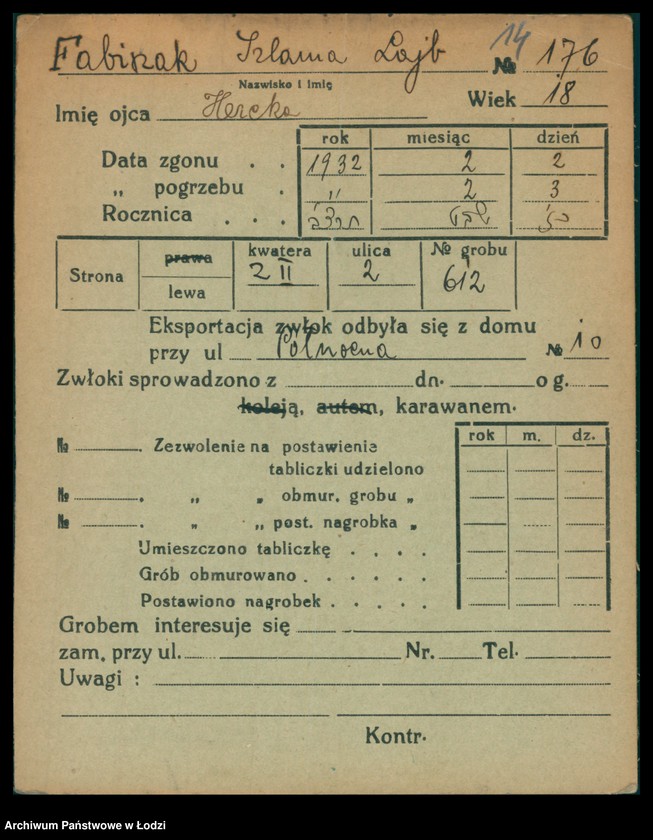 Fabiszak Szlama Lajb 14 № 176
Nazwisko i imię
Imię ojca Hercko Wiek 18
rok miesiąc dzień
Data zgonu . . 1932 2 2
„ pogrzebu . „ 2 3
Rocznica . . .
Strona prawa kwatera ulica № grobu
lewa 2 II 2 612
Eksportacja zwłok odbyła się z domu
przy ul Północna № 10
Zwłoki sprowadzono z dn. o g.
koleją, autem, karawanem.
rok m. dz.
№ . Zezwolenie na postawienie
tabliczki udzielono
№ . „ „ obmur. grobu „
№ . „ „ post. nagrobka „
Umieszczono tabliczkę . . . .
Grób obmurowano . . . . . .
Postawiono nagrobek . . . . .
Grobem interesuje się
zam. przy ul. Nr. Tel.
Uwagi :
Kontr.
Archiwum Państwowe w Łodzi